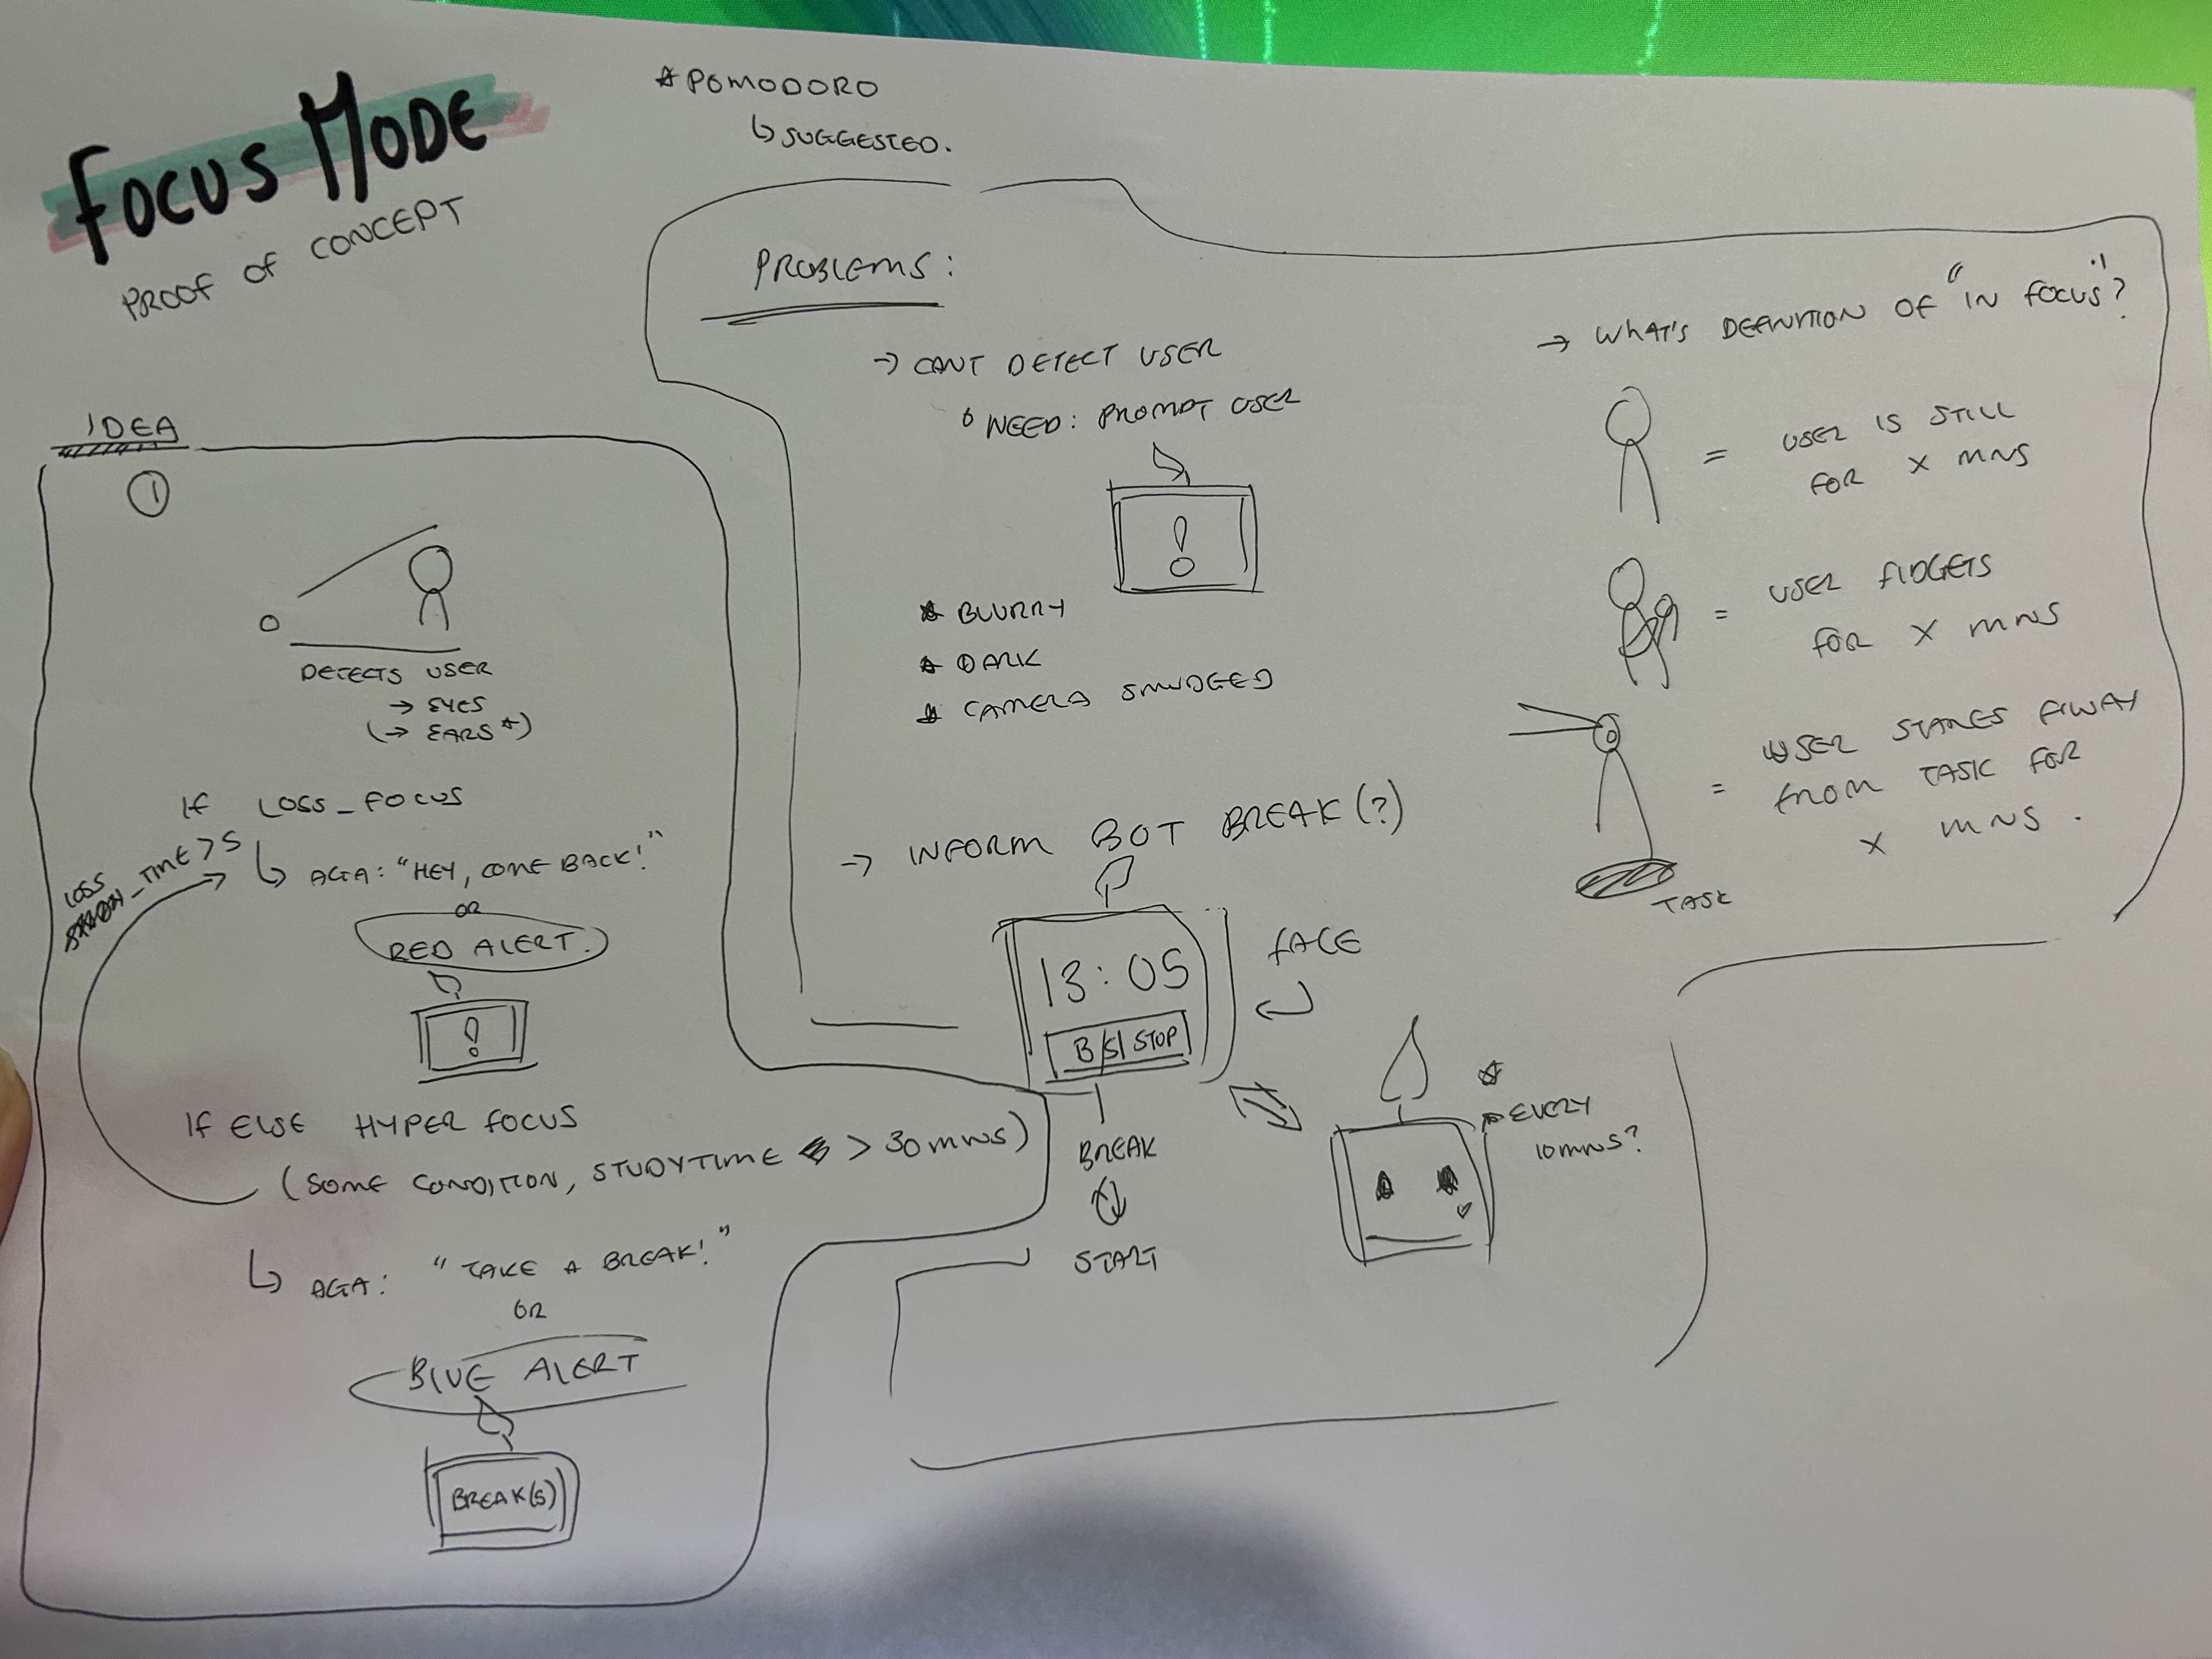 FOCUS MODE
PROOF OF CONCEPT
*POMODORO
↳ SUGGESTED.
IDEA
①
DETECTS USER
→ EYES
(→ EARS*)
IF LOSS_FOCUS
↳ AGA: "HEY, COME BACK!"
OR
RED ALERT.
!
LOSS
_TIME > 5
IF ELSE HYPER FOCUS
(SOME CONDITION, STUDYTIME > 30 MNS)
↳ AGA: "TAKE A BREAK!"
OR
BLUE ALERT
BREAK(S)
PROBLEMS:
→ CANT DETECT USER
° NEED: PROMPT USER
!
* BLURRY
* DARK
* CAMERA SMUDGED
→ INFORM BOT BREAK(?)
13:05
B/S/ STOP
FACE
BREAK
START
* EVERY
10 MNS?
→ WHAT'S DEFINITION OF "IN FOCUS"?
= USER IS STILL
FOR X MNS
= USER FIDGETS
FOR X MNS
= USER STARES AWAY
FROM TASK FOR
X MNS.
TASK